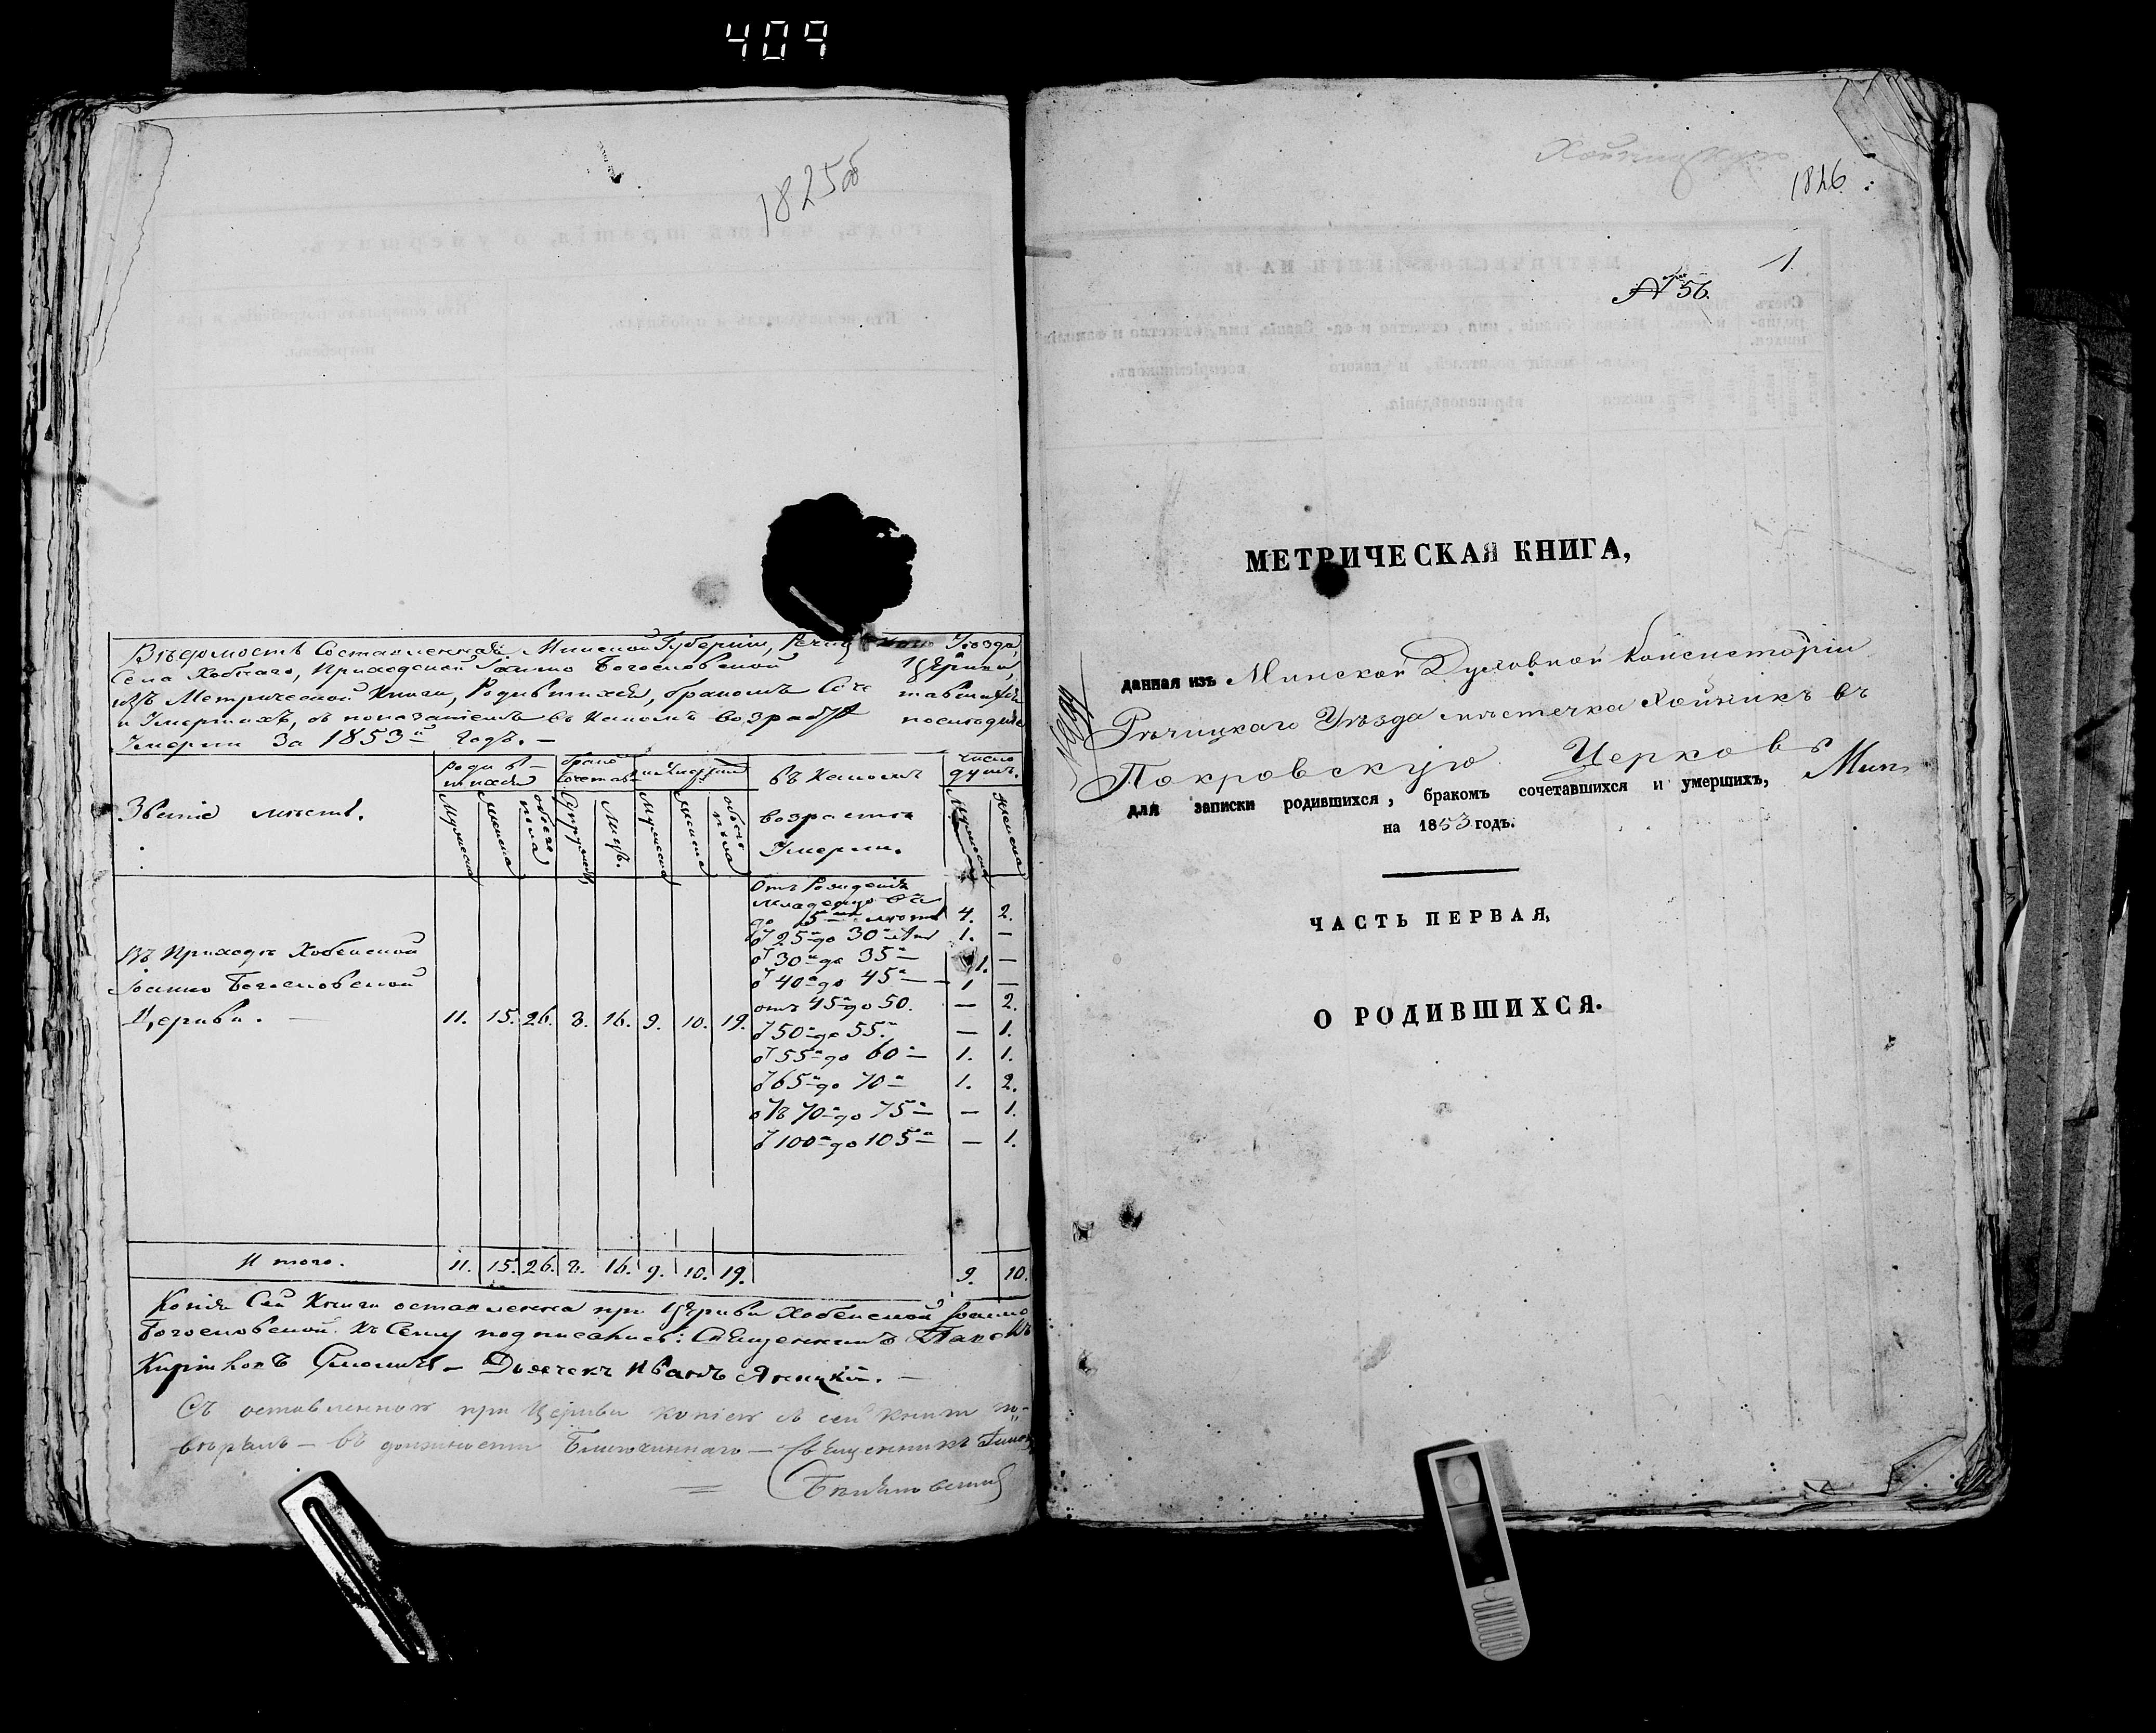 409
1825об
Вѣдомость Составленная Минской Губерніи, Уѣзда,
Села Хобнаго, Приходской Іоанно Богословской Церкви,
изъ Метрической Книги, Родившихся, бракомъ Соче тавшихся
и Умершихъ, съ показаніемъ въ какомъ возрастѣ послѣдніе
Умерли За 1853й годъ. —
роди в-шихся бракомъ число душъ.
Званіе мѣстъ. Мужеска женска обоего пола Супружес. Лицъ. Мужеска женска обоего пола въ какомъ возрастѣ Умерли. Мужеска Женска
Отъ Рожденія
младенцовъ
до 5 лѣтъ 4. 2.
от 25 до 30 лѣт 1. —
от 30 до 35 1. —
от 40 до 45 — 1 —
отъ 45 до 50. — 2.
от 50 до 55. — 1.
от 55 до 60 1. 1.
от 65 до 70 1. 2.
отъ 70 до 75 — 1.
от 100 до 105 — 1.
Въ Приходѣ Хобенской
Іоанно Богословской
Церкви. — 11. 15. 26. 8. 16. 9. 10. 19.
Итого. 11. 15. 26. 8. 16. 9. 10. 19. 9. 10.
Копія Сей Книги оставленна при Церкви Хобенской Іоанно
Богословской. Къ Сему подписались: Священникъ
Дьячекъ Иванъ
Съ оставленною при Церкви копіею сей книги по-
вѣрялъ — въ должности Благочиннаго — Священникъ
1826.
1.
№ 56.
МЕТРИЧЕСКАЯ КНИГА,
данная изъ Минской Духовной Консисторіи
Рѣчицкаго Уѣзда мѣстечка Хойникъ въ
Покровскую Церковь
для записки родившихся, бракомъ сочетавшихся и умершихъ,
на 1853 годъ.
ЧАСТЬ ПЕРВАЯ,
О РОДИВШИХСЯ.